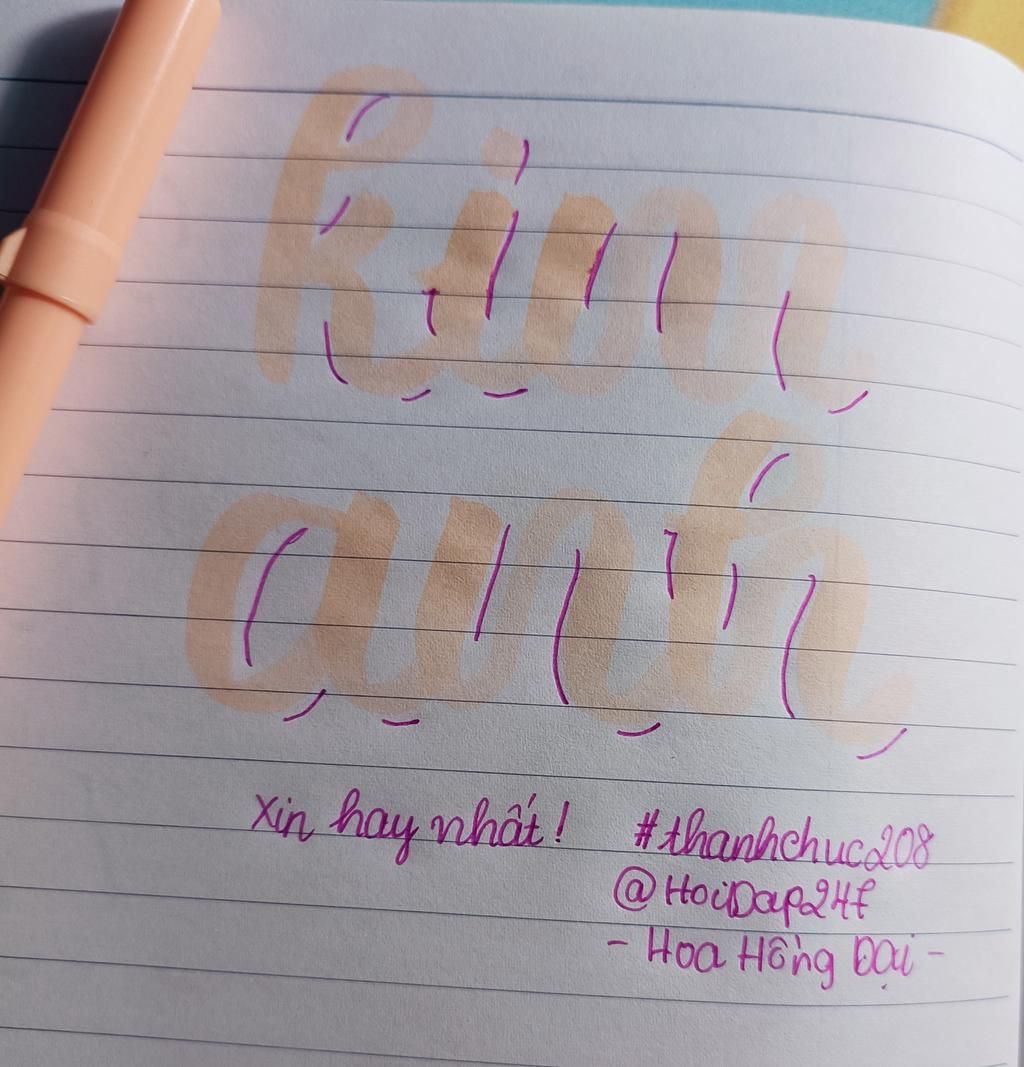 kim
anh
Xin hay nhất! #thanhchuc208
@HoiDap24f
- Hoa Hồng Dại -